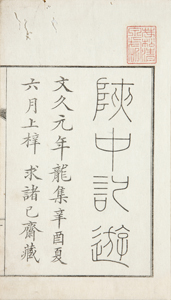 陝中記遊
文久元年龍集辛酉夏
六月上梓 求諸己齋藏